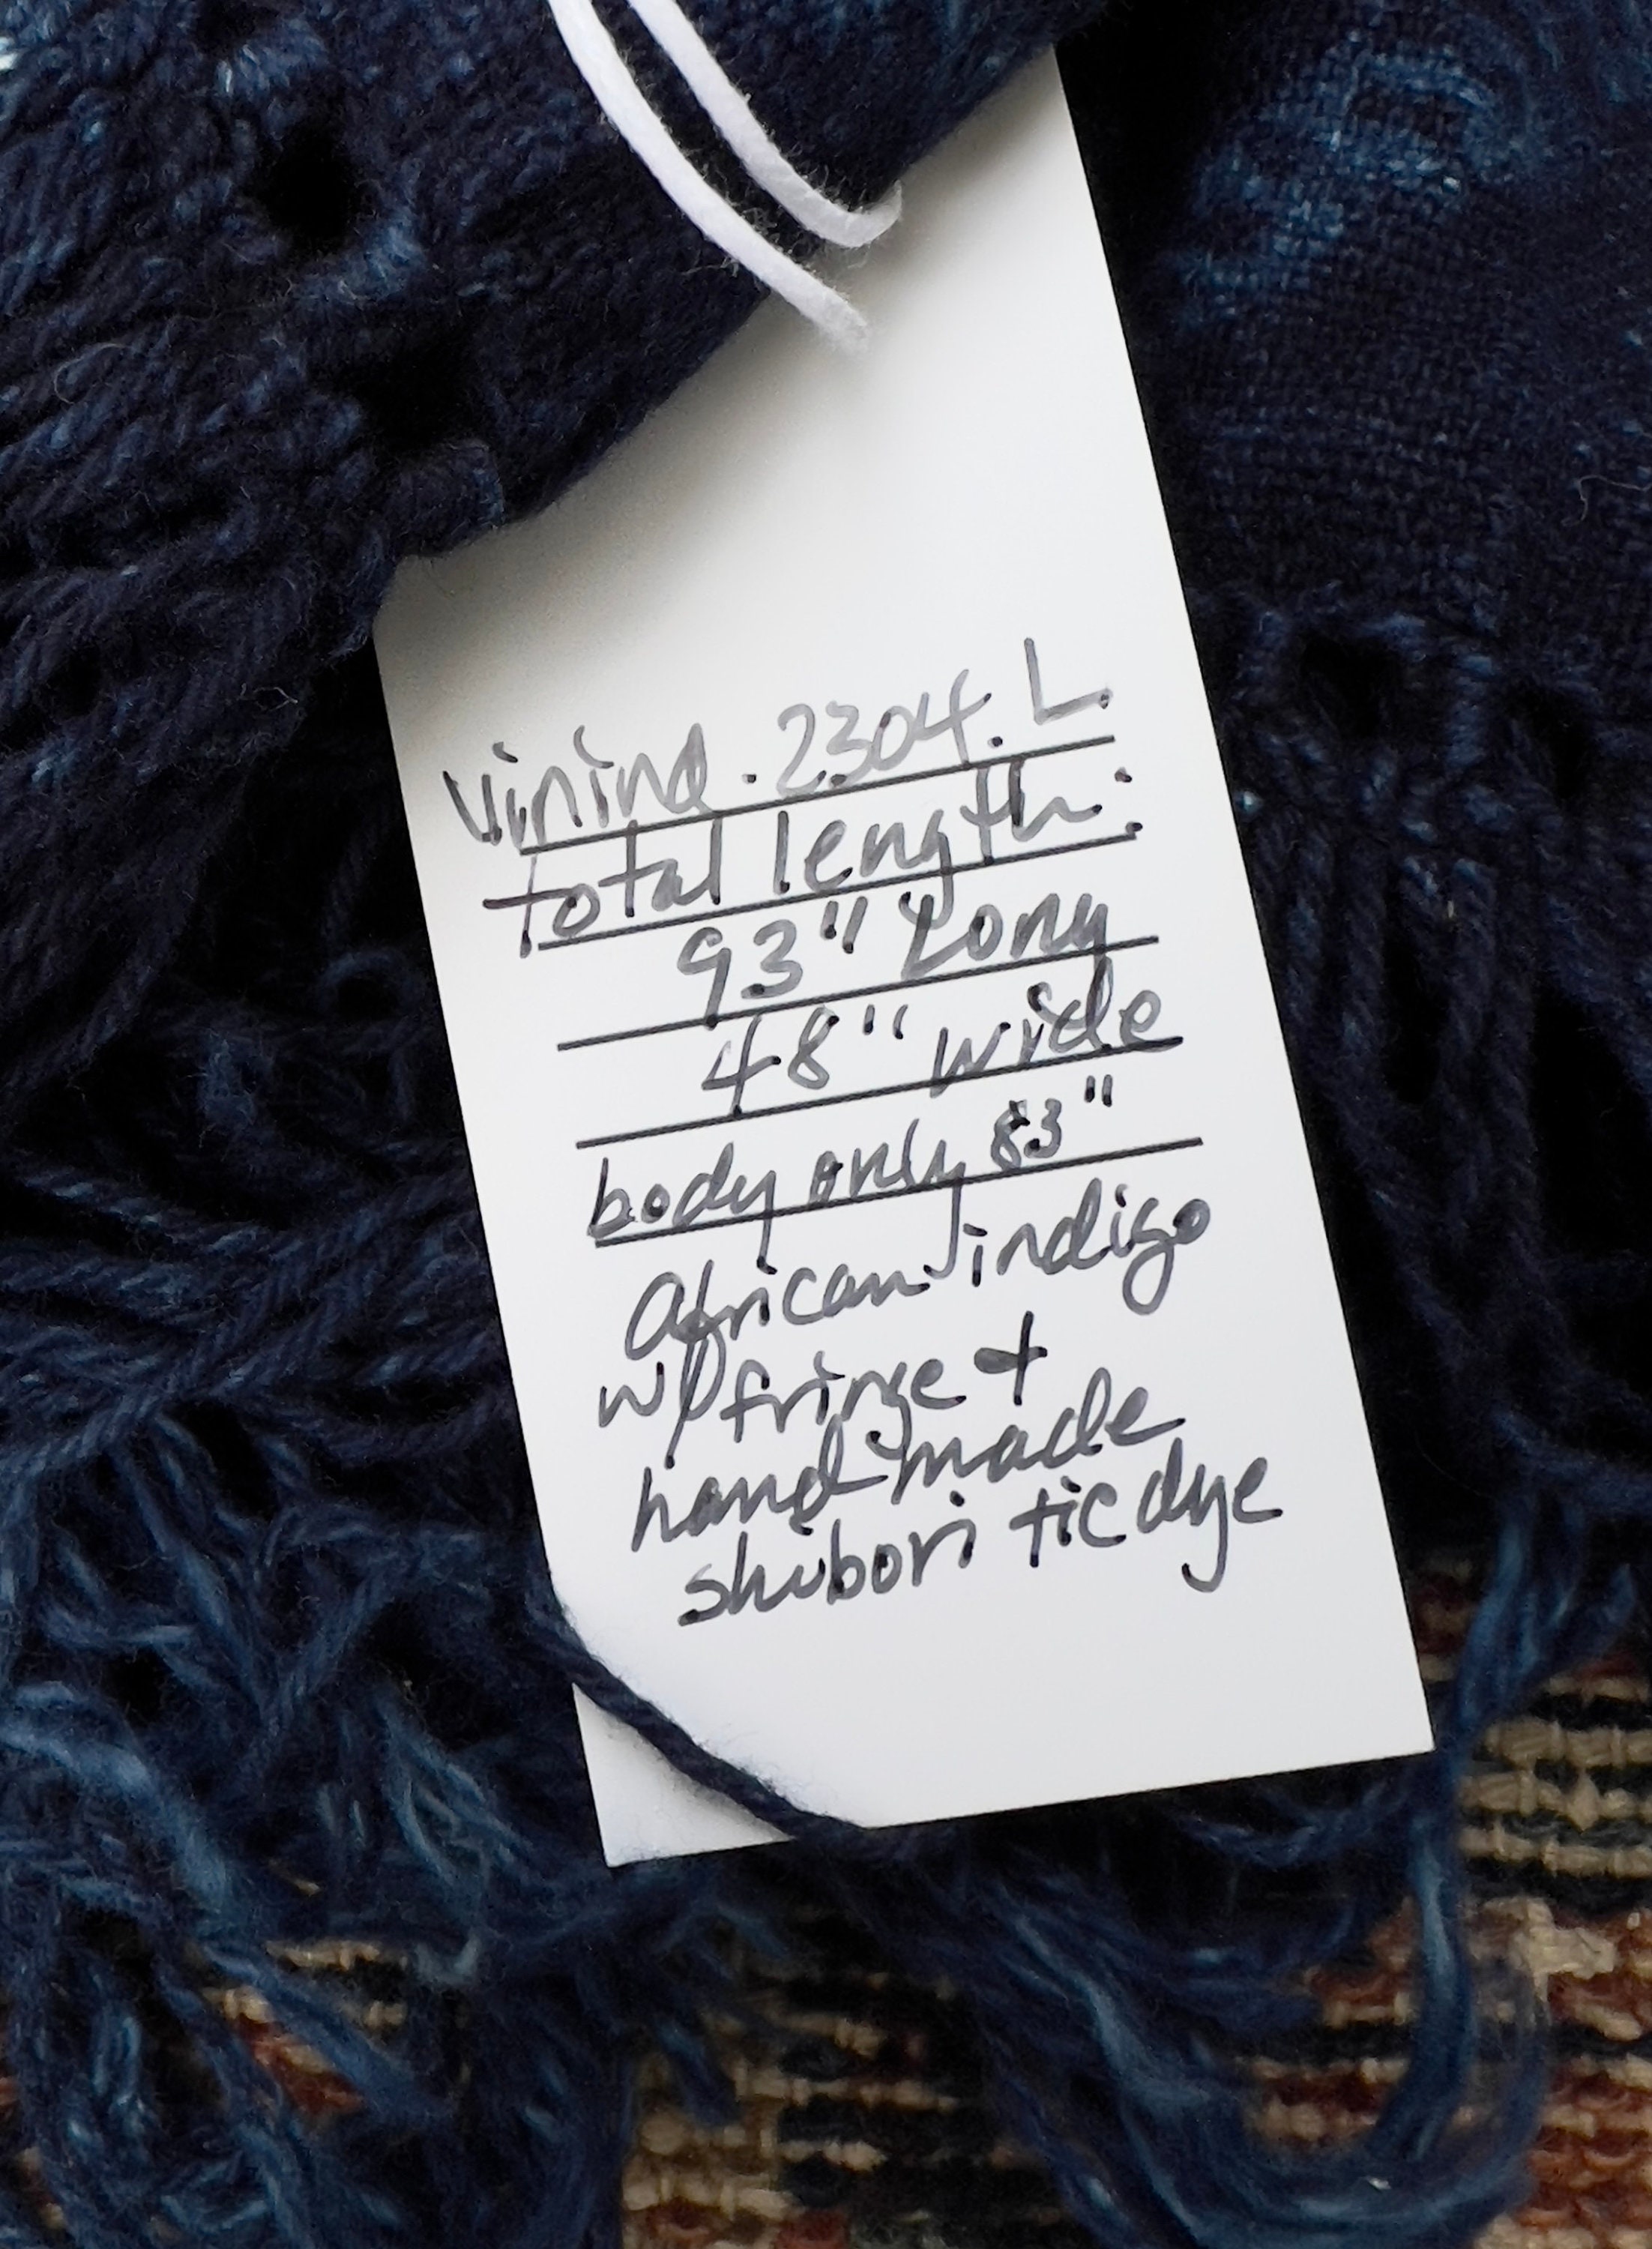 vinind.2304.L.
total length:
93" Long
48" wide
body only 83"
African indigo
w/fringe +
hand made
shibori tie dye